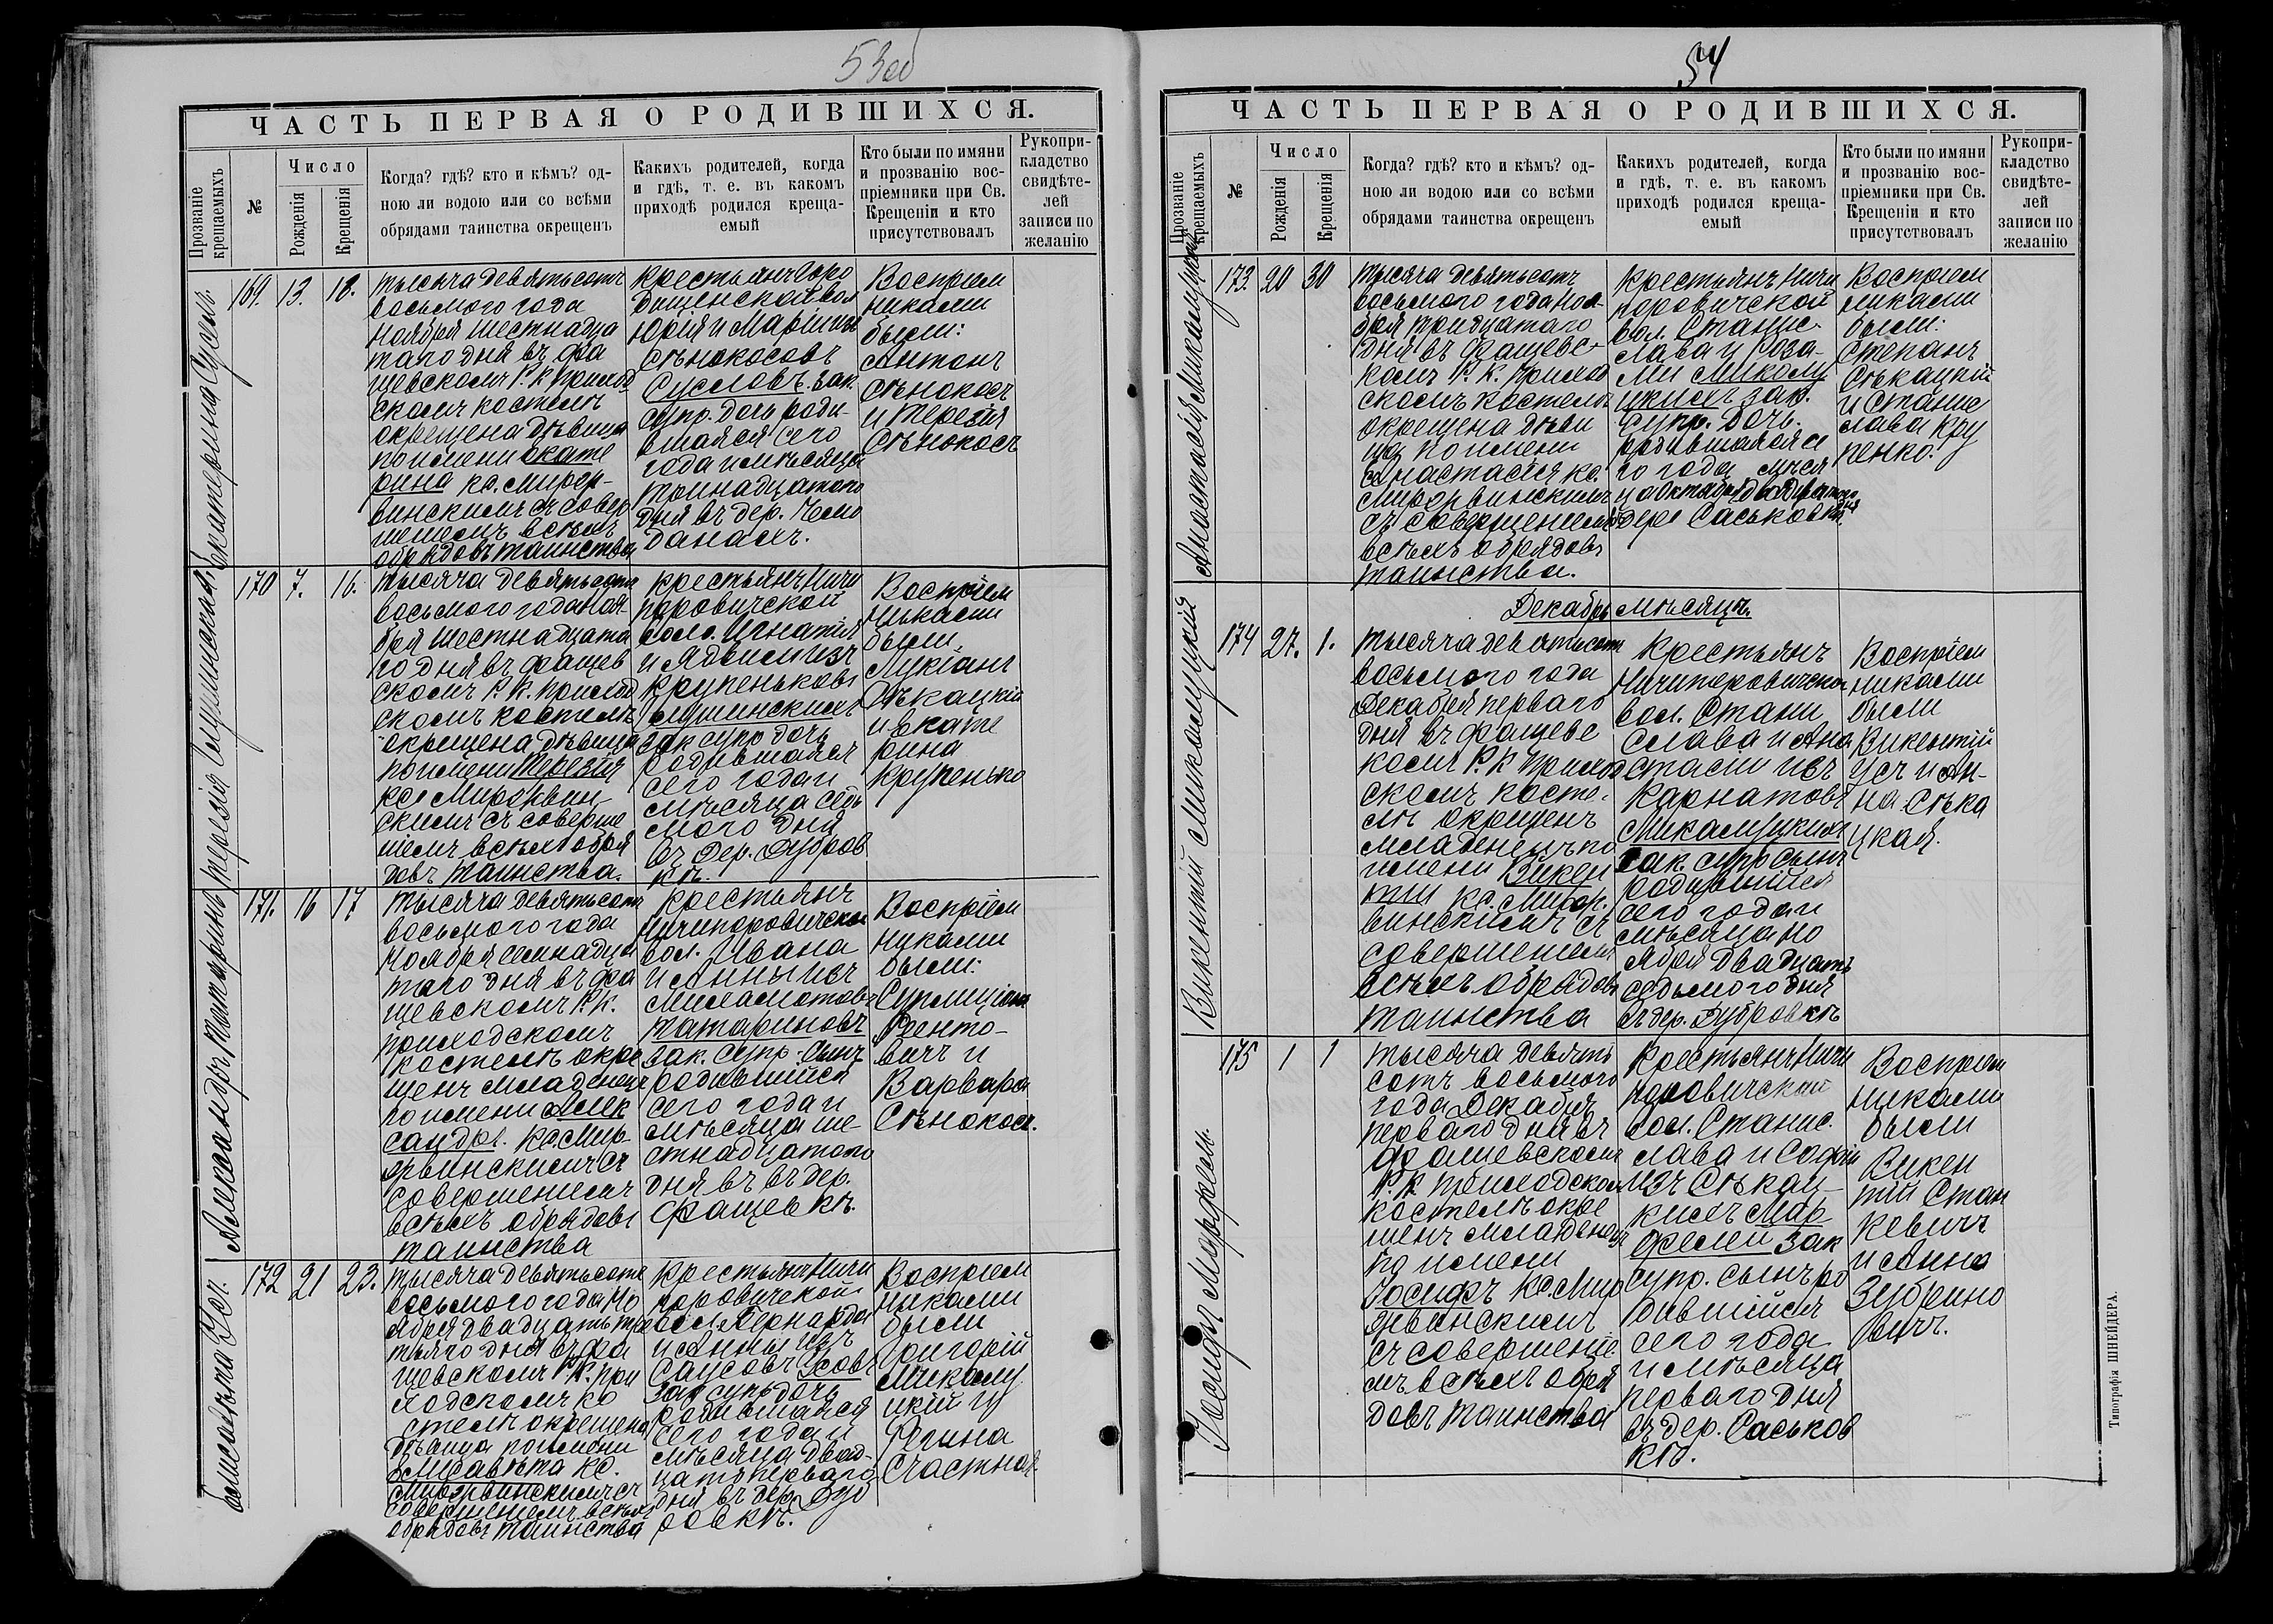 53об
ЧАСТЬ ПЕРВАЯ О РОДИВШИХСЯ.
Прозваніе крещаемыхъ
№
Число
Рожденія
Крещенія
Когда? гдѣ? кто и кѣмъ? од-
ною ли водою или со всѣми
обрядами таинства окрещенъ
Какихъ родителей, когда
и гдѣ, т. е. въ какомъ
приходѣ родился креща-
емый
Кто были по имяни
и прозванію вос-
пріемники при Св.
Крещеніи и кто
присутствовалъ
Рукопри-
кладство
свидѣте-
лей
записи по
желанію
Екатерина
169. 13. 18.
тысяча девятьсотъ
восьмого года
ноября шестнадца
таго дня въ Фа
щевскомъ Р. К. приход
скомъ костелѣ
окрещена дѣвица
по имени Екате
рина кс.
съ совер
шеніемъ всѣхъ
обрядовъ таинства
Крестьянъ Горо
дищенской вол
Юрія и Маріи
Сѣнокосовъ
Сусловъ зак.
супр. дочь роди-
вшаяся сего
года и мѣсяца
тринадцатого
дня въ дер. Чемо
данахъ.
Воспріем
никами
были:
Антонъ
Сѣнокосъ
и Терезія
Сѣнокосъ
Терезія
170 7. 16.
тысяча девятьсотъ
восьмого года ноя
бря шестнадцата
го дня въ Фащев
скомъ Р. К. приход
скомъ костелѣ
окрещена дѣвица
по имени Терезія
скимъ съ соверше
ніемъ всѣхъ обря
довъ таинства.
Крестьянъ Ничи
поровичской
воло. Игнатія
и Ядвиги изъ
Крупеньковъ
зак супр дочь
родившаяся
сего года и
мѣсяца седь
мого дня
въ дер. Дубров
кѣ.
Воспріем
никами
были
Лукіанъ
Сѣкацкій
и Екате
рина
Крупенько
Александръ Татариновъ
171. 16 17
тысяча девятьсотъ
восьмого года
Ноября семнадца
таго дня въ Фа
щевскомъ Р. К.
приходскомъ
костелѣ окре
щенъ младенецъ
по имени Алек
сандръ. кс.
съ
совершеніемъ
всѣхъ обрядовъ
таинства
Крестьянъ
Ничипоровичской
вол. Ивана
и Анны изъ
Татариновъ
зак. супр. сынъ
родившійся
сего года и
мѣсяца ше
стнадцатого
дня въ въ дер.
Фащевкѣ.
Воспріем
никами
были:
вичъ и
Варвара
Сѣнокосъ.
Елисавѣта Усъ.
172 21 23.
тысяча девятьсотъ
восьмого года Но
ября двадцать тре
тьяго дня въ Фа
щевскомъ Р. К. при
ходскомъ ко
стелѣ окрещена
дѣвица по имени
Елисавѣта кс.
съ
совершеніемъ всѣхъ
обрядовъ таинства
Крестьянъ Ничи
поровичской
вол. Бернарда
и Анны изъ
Усовъ
зак супр дочь
родившаяся
сего года и
мѣсяца двад-
цать перваго
дня въ дер. Дуб
ровкѣ.
Воспріем
никами
были
Григорій
Микалу
цкій и
Регина
Счастная.
54
ЧАСТЬ ПЕРВАЯ О РОДИВШИХСЯ.
Прозваніе крещаемыхъ
№
Число
Рожденія
Крещенія
Когда? гдѣ? кто и кѣмъ? од-
ною ли водою или со всѣми
обрядами таинства окрещенъ
Какихъ родителей, когда
и гдѣ, т. е. въ какомъ
приходѣ родился креща-
емый
Кто были по имяни
и прозванію вос-
пріемники при Св.
Крещеніи и кто
присутствовалъ
Рукопри-
кладство
свидѣте-
лей
записи по
желанію
Анастасія Микалуцкая
173. 20 30
тысяча девятьсотъ
восьмого года ноя-
бря тридцатаго
дня въ Фащевс-
комъ Р. К. приход
скомъ костелѣ
окрещена дѣви
ца по имени
Анастасія кс.
съ совершеніемъ
всѣхъ обрядовъ
таинства.
Крестьянъ Ничи
поровичской
вол. Станис-
лава и Роза-
ліи Микалу
цкихъ зак.
супр. дочь.
родившаяся се
го года мѣся
ца октября двадцатого дня
дере Саськовкѣ
Воспріем
никами
были:
Степанъ
Сѣкацкій
и Станис
лава Кру
пенко.
Декабрь мѣсяцъ.
Викентій Микалуцкій
174 27. 1.
тысяча девятьсотъ
восьмого года
Декабря перваго
дня въ Фащевс
комъ Р. К приход
скомъ косте-
лѣ окрещенъ
младенецъ по
имени Викен
тій кс.
съ
совершеніемъ
всѣхъ обрядовъ
таинства
Крестьянъ
Ничипоровичской
вол. Стани
слава и Ана
стасіи изъ
Карнатовъ
Микалуцкихъ
зак. супр сынъ
родившійся
сего года и
мѣсяца но
ября двадцать
седьмого дня
въ дер. Дубровкѣ
Воспріем
никами
были
Викентій
Усъ и Ан-
на Сѣка
цкая.
Іосифъ Марфель.
175 1 1
тысяча девять
сотъ восьмого
года Декабря
перваго дня въ
Фащевскомъ
Р. К приходском
костелѣ окре
щенъ младенецъ
по имени
Іосифъ кс.
съ совершеніе
мъ всѣхъ обря
довъ таинства
Крестьянъ Ничи
поровичской
вол. Станис.
лава и Софіи
изъ Сѣкац-
кихъ Мар
фелей зак
супр. сынъ ро
дившійся
сего года
и мѣсяца
перваго дня
въ дер. Саськов
кѣ.
Воспріем
никами
были
Викен
тій Стан
кевичъ
и Анна
Зубрино
вичъ.
Типографія ШНЕЙДЕРА.